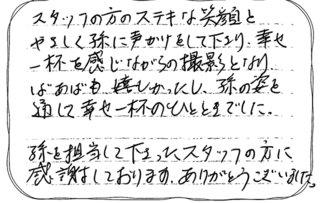 スタッフの方のステキな笑顔と
やさしく孫に声かけをして下さり、幸せ
一杯を感じながらの撮影となり
ばあばも、嬉しかったし、孫の姿を
通して幸せ一杯のひとときでした。
孫を担当して下さったスタッフの方に
感謝しております。ありがとうございました。